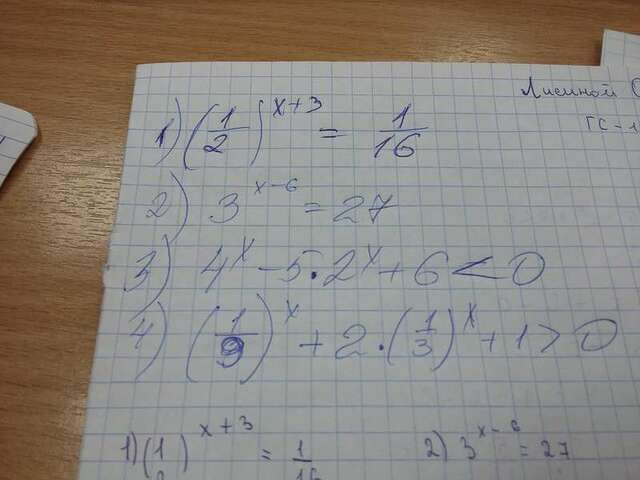 Лисиной
ГС-1
1) (1/2)^(x+3) = 1/16
2) 3^(x-6) = 27
3) 4^x - 5·2^x + 6 < 0
4) (1/9)^x + 2·(1/3)^x + 1 > 0
1) (1/2)^(x+3) = 1/16 2) 3^(x-6) = 27